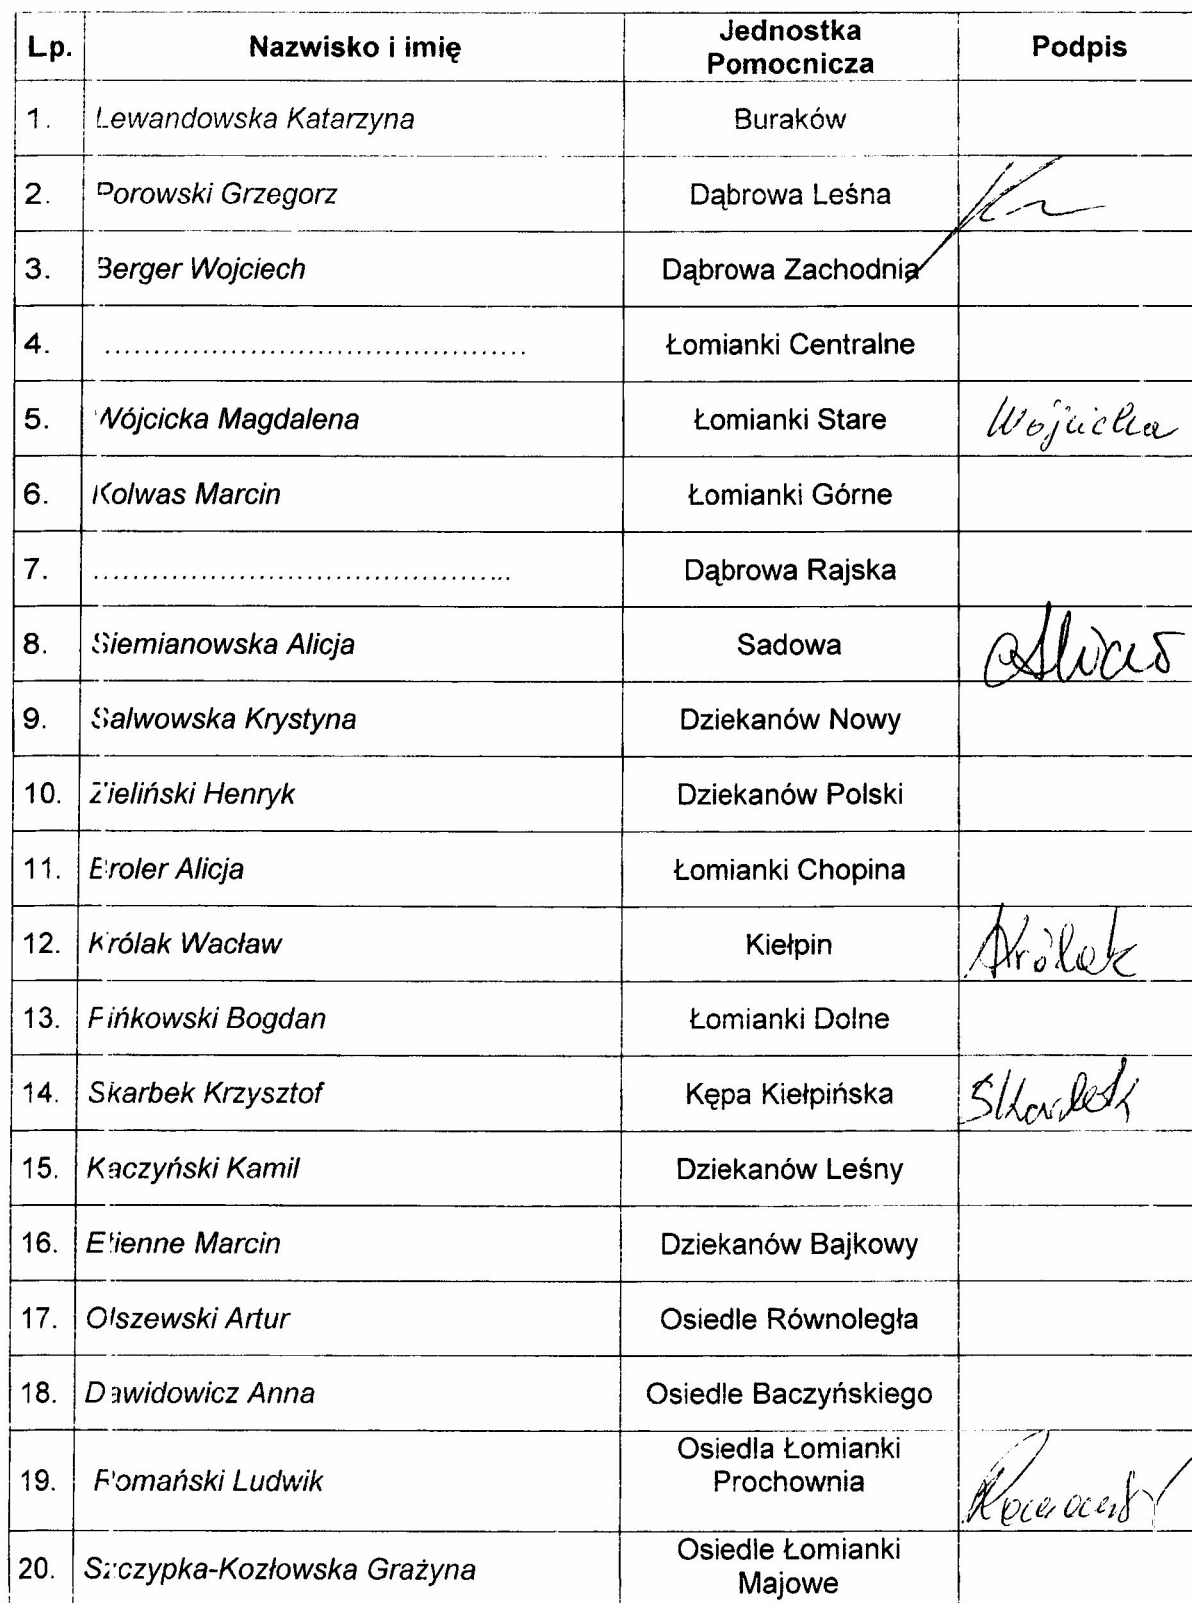 Lp. Nazwisko i imię Jednostka Pomocnicza Podpis
1. Lewandowska Katarzyna Buraków
2. Porowski Grzegorz Dąbrowa Leśna
3. Berger Wojciech Dąbrowa Zachodnia
4. .......................................... Łomianki Centralne
5. Wójcicka Magdalena Łomianki Stare Wójcicka
6. Kolwas Marcin Łomianki Górne
7. .......................................... Dąbrowa Rajska
8. Siemianowska Alicja Sadowa
9. Salwowska Krystyna Dziekanów Nowy
10. Zieliński Henryk Dziekanów Polski
11. Broler Alicja Łomianki Chopina
12. Królak Wacław Kiełpin Królak
13. Pińkowski Bogdan Łomianki Dolne
14. Skarbek Krzysztof Kępa Kiełpińska Skarbek
15. Kaczyński Kamil Dziekanów Leśny
16. Etienne Marcin Dziekanów Bajkowy
17. Olszewski Artur Osiedle Równoległa
18. Dawidowicz Anna Osiedle Baczyńskiego
19. Romański Ludwik Osiedla Łomianki Prochownia
20. Szczypka-Kozłowska Grażyna Osiedle Łomianki Majowe